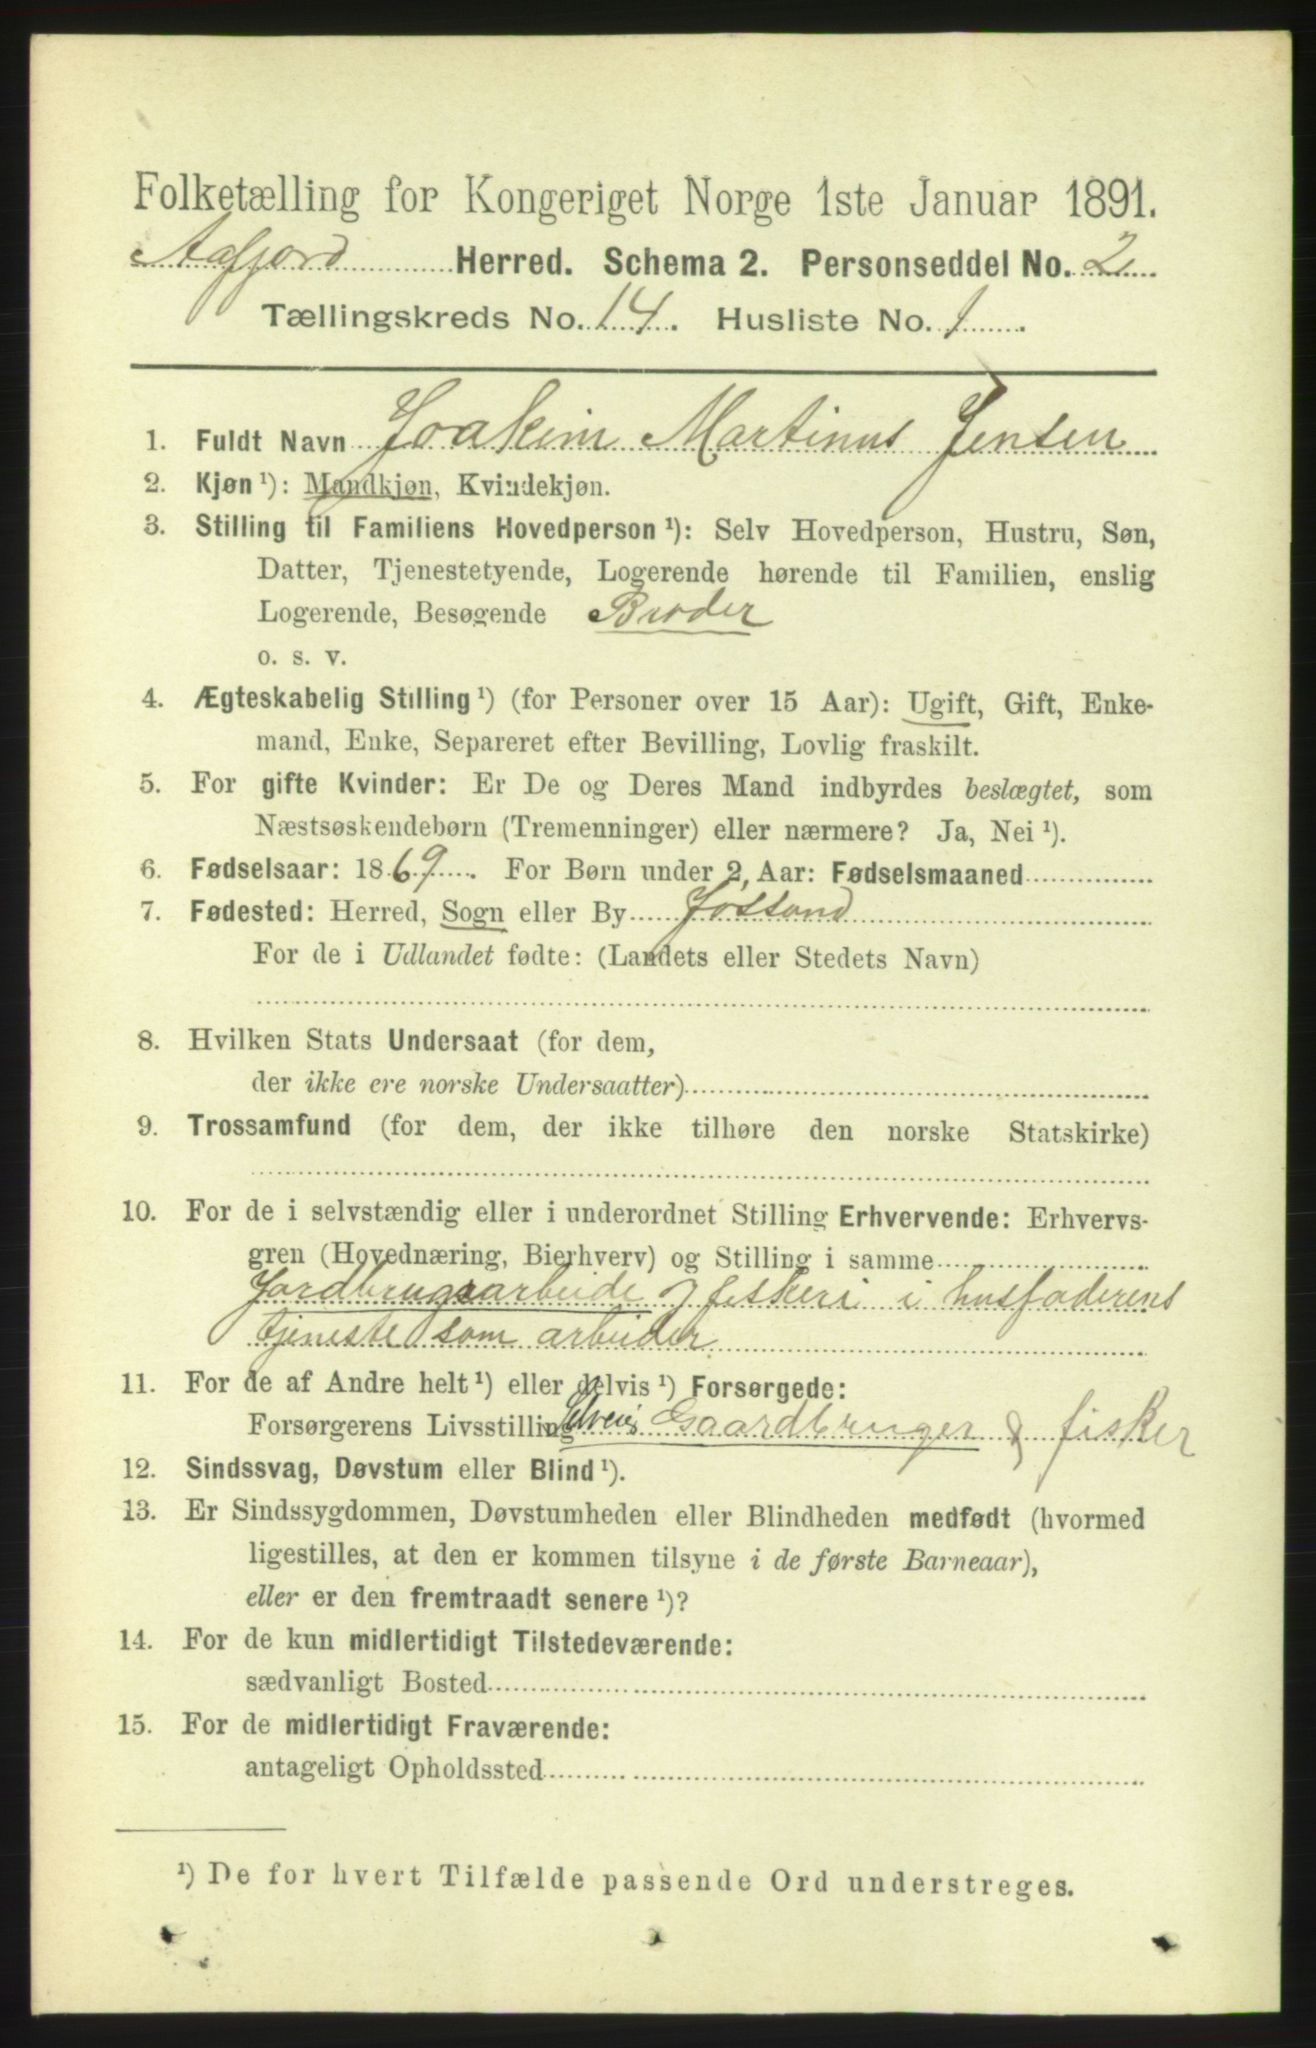 Folketælling for Kongeriget Norge 1ste Januar 1891.
Aafjord Herred. Schema 2. Personseddel No. 2
Tællingskreds No. 14. Husliste No. 1
1. Fuldt Navn Joakim Martinus Jensen
2. Kjøn ¹): Mandkjøn, Kvindekjøn.
3. Stilling til Familiens Hovedperson ¹): Selv Hovedperson, Hustru, Søn,
Datter, Tjenestetyende, Logerende hørende til Familien, enslig
Logerende, Besøgende Broder
o. s. v.
4. Ægteskabelig Stilling ¹) (for Personer over 15 Aar): Ugift, Gift, Enke-
mand, Enke, Separeret efter Bevilling, Lovlig fraskilt.
5. For gifte Kvinder: Er De og Deres Mand indbyrdes beslægtet, som
Næstsøskendebørn (Tremenninger) eller nærmere? Ja, Nei ¹).
6. Fødselsaar: 1869. For Børn under 2 Aar: Fødselsmaaned
7. Fødested: Herred, Sogn eller By Jøssund
For de i Udlandet fødte: (Landets eller Stedets Navn)
8. Hvilken Stats Undersaat (for dem,
der ikke ere norske Undersaatter)
9. Trossamfund (for dem, der ikke tilhøre den norske Statskirke)
10. For de i selvstændig eller i underordnet Stilling Erhvervende: Erhvervs-
gren (Hovednæring, Bierhverv) og Stilling i samme
Jordbrugsarbeide & fiskeri i husfaderens
tjeneste som arbeider
11. For de af Andre helt ¹) eller delvis ¹) Forsørgede:
Forsørgerens Livsstilling Selveie Gaardbruger & fisker
12. Sindssvag, Døvstum eller Blind ¹).
13. Er Sindssygdommen, Døvstumheden eller Blindheden medfødt (hvormed
ligestilles, at den er kommen tilsyne i de første Barneaar),
eller er den fremtraadt senere ¹)?
14. For de kun midlertidigt Tilstedeværende:
sædvanligt Bosted
15. For de midlertidigt Fraværende:
antageligt Opholdssted
¹) De for hvert Tilfælde passende Ord understreges.